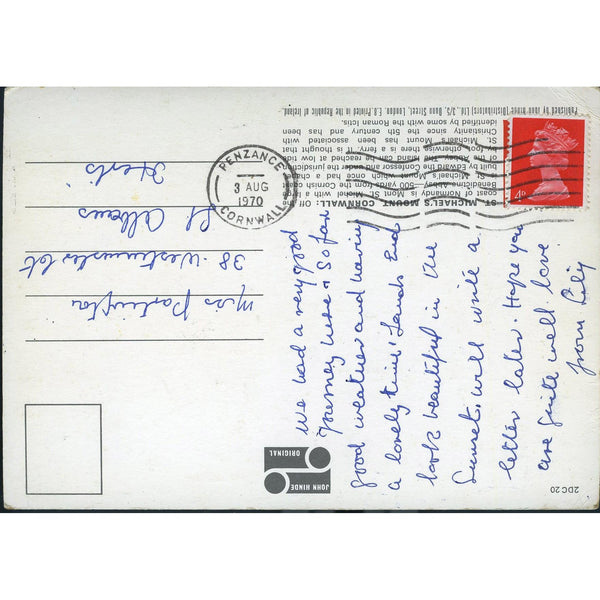 ST. MICHAEL'S MOUNT, CORNWALL: Off the
coast of Normandy is Mont St. Michel with a
Benedictine Abbey—500 yards from the Cornish coast
St. Michael's Mount
by Edward the Confessor under the jurisdiction
of the Abbey. The Island can be reached at low tide
by foot, otherwise there is a ferry. It is thought
St. Michael's Mount has been associated with
Christianity since the 5th century and has been
identified by some with the Roman Ictis.
Published by John Hinde (Distributors) Ltd., 3/5, Dunn Street, London, E.8. Printed in the Republic of Ireland.
PENZANCE
3 AUG
1970
CORNWALL
4D
We had a very good
journey here & so far
good weather and having
a lovely time, Lands End
look beautiful in the
Sunset, will write a
letter later. Hope you
are quite well love
from Lily
Miss
38 Westminster Cot
St Albans
Herts
JOHN HINDE
ORIGINAL
2DC20